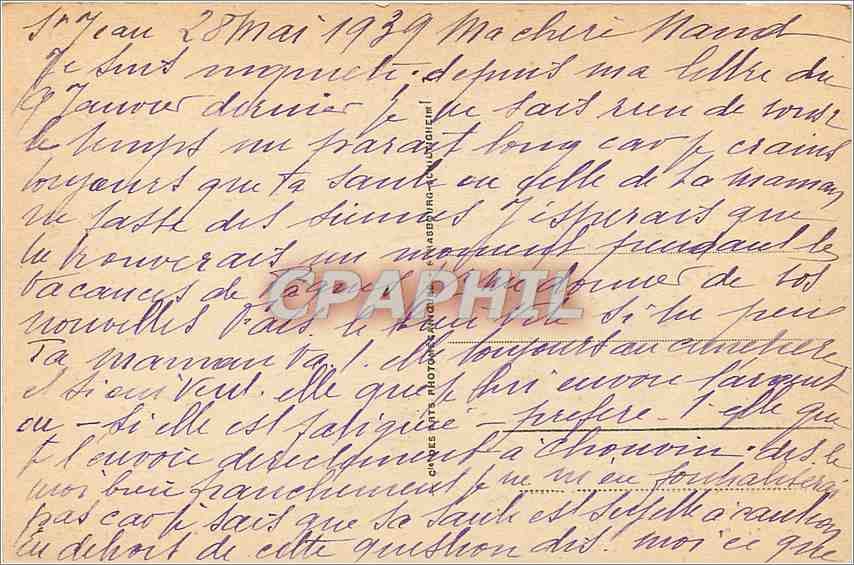 St Jean 28 Mai 1939 Ma cheri Nand
Je suis inquiete. depuis ma lettre du
9 Janvier dernier je ne sais rien de vous
le temps me parait long car je crains
toujours que ta santé ou celle de ta maman
ne fasse des siennes J'esperais que
tu trouverais un moment pendant les
vacances de Paques me donner de vos
nouvelles Fais le bien vite si tu peux
Ta maman va t. elle toujours au cimetiere
et si oui veut. elle que je lui envoie l'argent
ou - si elle est fatiguée - prefere - t elle que
je l'envoie directement à Chouvin. dis le
moi bien franchement je ne m'en formaliserai
pas car je sais que sa santé est sujette à caution
En dehors de cette question dis. moi ce que
Cie DES ARTS PHOTOMECANIQUES STRASBOURG-SCHILTIGHEIM
CPAPHIL